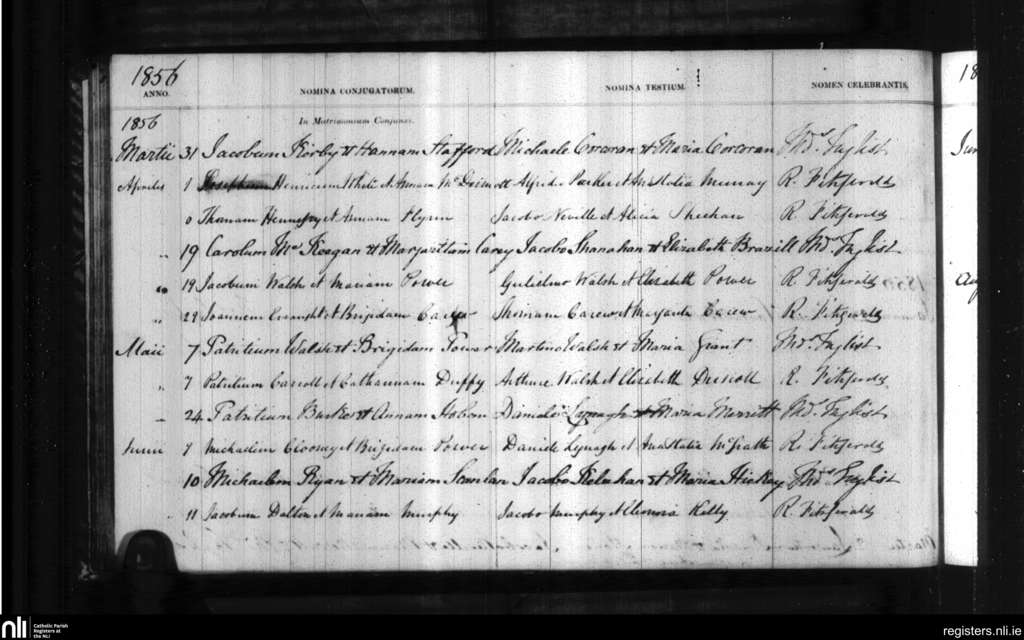 1856
ANNO. NOMINA CONJUGATORUM. NOMINA TESTIUM. NOMEN CELEBRANTIS,
1856 In Matrimonium Conjunxi.
Martii 31 Jacobum Kirby et Hannam Stafford Michaele Corcoran et Maria Corcoran Thos. English
Aprilis 1 Henricum White et Annam McDermott Alfrido Parker et Anastatia Murray R. Fitzgerald
Thomam Hennessy et Annam Flynn Jacobo Neville et Alicia Sheehan R. Fitzgerald
" 19 Carolum McKeegan et Margaritam Carey Jacobo Shanahan et Elizabeth Brazill Thos. English
" 19 Jacobum Walsh et Mariam Power Gulielmo Walsh et Elizabeth Power R. Fitzgerald
" 29 Joannem et Brigidam Carew Thomam Carew et Margarita Carew R. Fitzgerald
Maii 7 Patritium Walsh et Brigidam Power Martino Walsh et Maria Grant Thos. English
" 7 Patritium Carroll et Catharinam Duffy Arthuro Walsh et Elizabeth Driscoll R. Fitzgerald
" 24 Patritium Burke et Annam Daniele Lynagh et Maria Merritt Thos. English
Junii 7 Michaelem Clooney et Brigidam Power Daniele Lynagh et Anastatia McGrath R. Fitzgerald
10 Michaelem Ryan et Mariam Scanlan Jacobo Kelechan et Maria Hickey Thos. English
" 11 Jacobum Dalton et Mariam Murphy Jacobo Murphy et Elenora Kelly R. Fitzgerald
18
Jun
nli Catholic Parish
Registers at
the NLI
registers.nli.ie